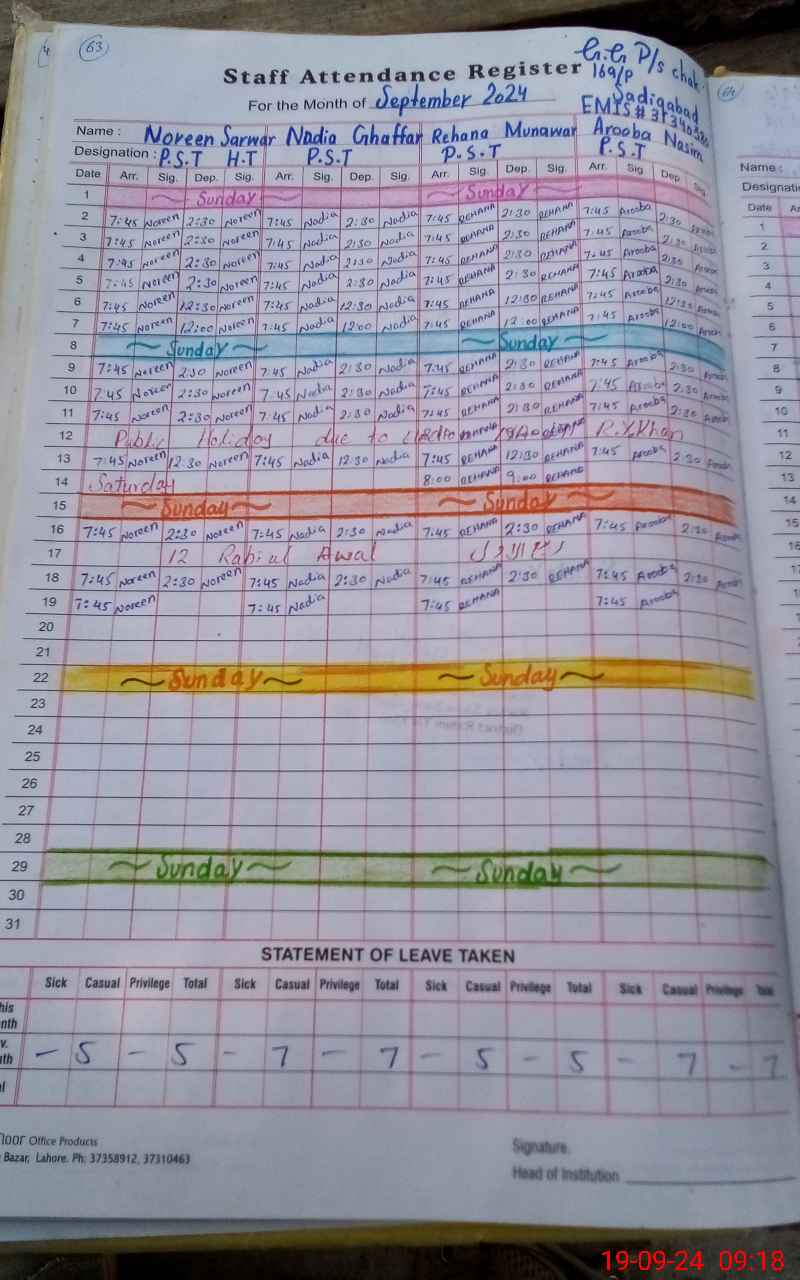 63
Staff Attendance Register
G.G P/s chak
169/P
Sadiqabad
EMIS # 31340
For the Month of September 2024
Name : Noreen Sarwar Nadia Ghaffar Rehana Munawar Arooba Nasim
Designation : P.S.T H.T P.S.T P.S.T P.S.T
Date Arr. Sig. Dep. Sig. Arr. Sig. Dep. Sig. Arr. Sig. Dep. Sig. Arr. Sig Dep. Sig.
1 ~ Sunday ~ ~ Sunday ~
2 7:45 Noreen 2:30 Noreen 7:45 Nadia 2:30 Nadia 7:45 REHANA 2:30 REHANA 7:45 Arooba 2:30 Arooba
3 7:45 Noreen 2:30 Noreen 7:45 Nadia 2:30 Nadia 7:45 REHANA 2:30 REHANA 7:45 Arooba 2:30 Arooba
4 7:45 Noreen 2:30 Noreen 7:45 Nadia 2:30 Nadia 7:45 REHANA 2:30 REHANA 7:45 Arooba 2:30 Arooba
5 7:45 Noreen 2:30 Noreen 7:45 Nadia 2:30 Nadia 7:45 REHANA 2:30 REHANA 7:45 Arooba 2:30 Arooba
6 7:45 Noreen 12:30 Noreen 7:45 Nadia 12:30 Nadia 7:45 REHANA 12:30 REHANA 7:45 Arooba 12:30 Arooba
7 7:45 Noreen 12:00 Noreen 7:45 Nadia 12:00 Nadia 7:45 REHANA 12:00 REHANA 7:45 Arooba 12:00 Arooba
8 ~ Sunday ~ ~ Sunday ~
9 7:45 Noreen 2:30 Noreen 7:45 Nadia 2:30 Nadia 7:45 REHANA 2:30 REHANA 7:45 Arooba 2:30 Arooba
10 7:45 Noreen 2:30 Noreen 7:45 Nadia 2:30 Nadia 7:45 REHANA 2:30 REHANA 7:45 Arooba 2:30 Arooba
11 7:45 Noreen 2:30 Noreen 7:45 Nadia 2:30 Nadia 7:45 REHANA 2:30 REHANA 7:45 Arooba 2:30 Arooba
12 Public Holiday due to R.Y.Khan
13 7:45 Noreen 12:30 Noreen 7:45 Nadia 12:30 Nadia 7:45 REHANA 12:30 REHANA 7:45 Arooba 2:30 Arooba
14 Saturday 8:00 REHANA 9:00 REHANA
15 ~ Sunday ~ ~ Sunday ~
16 7:45 Noreen 2:30 Noreen 7:45 Nadia 2:30 Nadia 7:45 REHANA 2:30 REHANA 7:45 Arooba 2:30 Arooba
17 12 Rabiul Awal
18 7:45 Noreen 2:30 Noreen 7:45 Nadia 2:30 Nadia 7:45 REHANA 2:30 REHANA 7:45 Arooba 2:30 Arooba
19 7:45 Noreen 7:45 Nadia 7:45 REHANA 7:45 Arooba
20
21
22 ~ Sunday ~ ~ Sunday ~
23
24
25
26
27
28
29 ~ Sunday ~ ~ Sunday ~
30
31
STATEMENT OF LEAVE TAKEN
Sick Casual Privilege Total Sick Casual Privilege Total Sick Casual Privilege Total Sick Casual Privilege Total
his
nth
v.
th - 5 - 5 - 7 - 7 - 5 - 5 - 7 - 7
l
loor Office Products
Bazar, Lahore. Ph: 37358912, 37310463
Signature.
Head of Institution
64
Name :
Designati
Date A
1
2
3
4
5
6
7
8
9
10
11
12
13
14
15
16
19-09-24 09:18